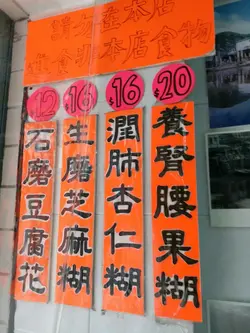 請勿在本店
飲食非本店食物
$12
$16
$16
$20
石磨豆腐花
生磨芝麻糊
潤肺杏仁糊
養腎腰果糊